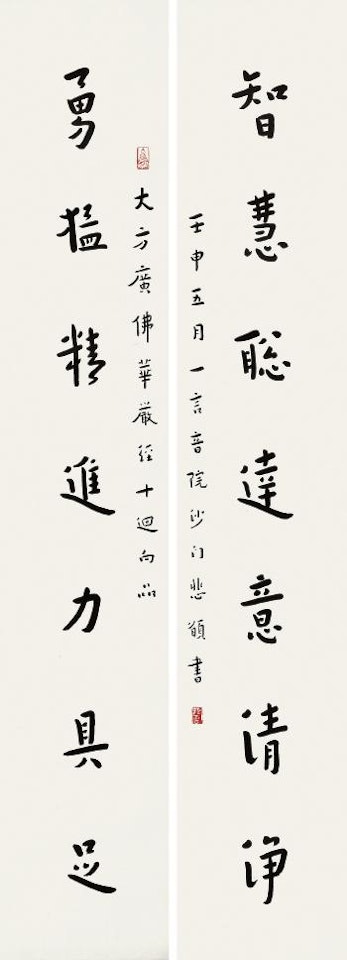 智慧聡達意清浄
壬申五月一言音院沙门悲願書
大方廣佛華嚴經十迴向品
勇猛精進力具足